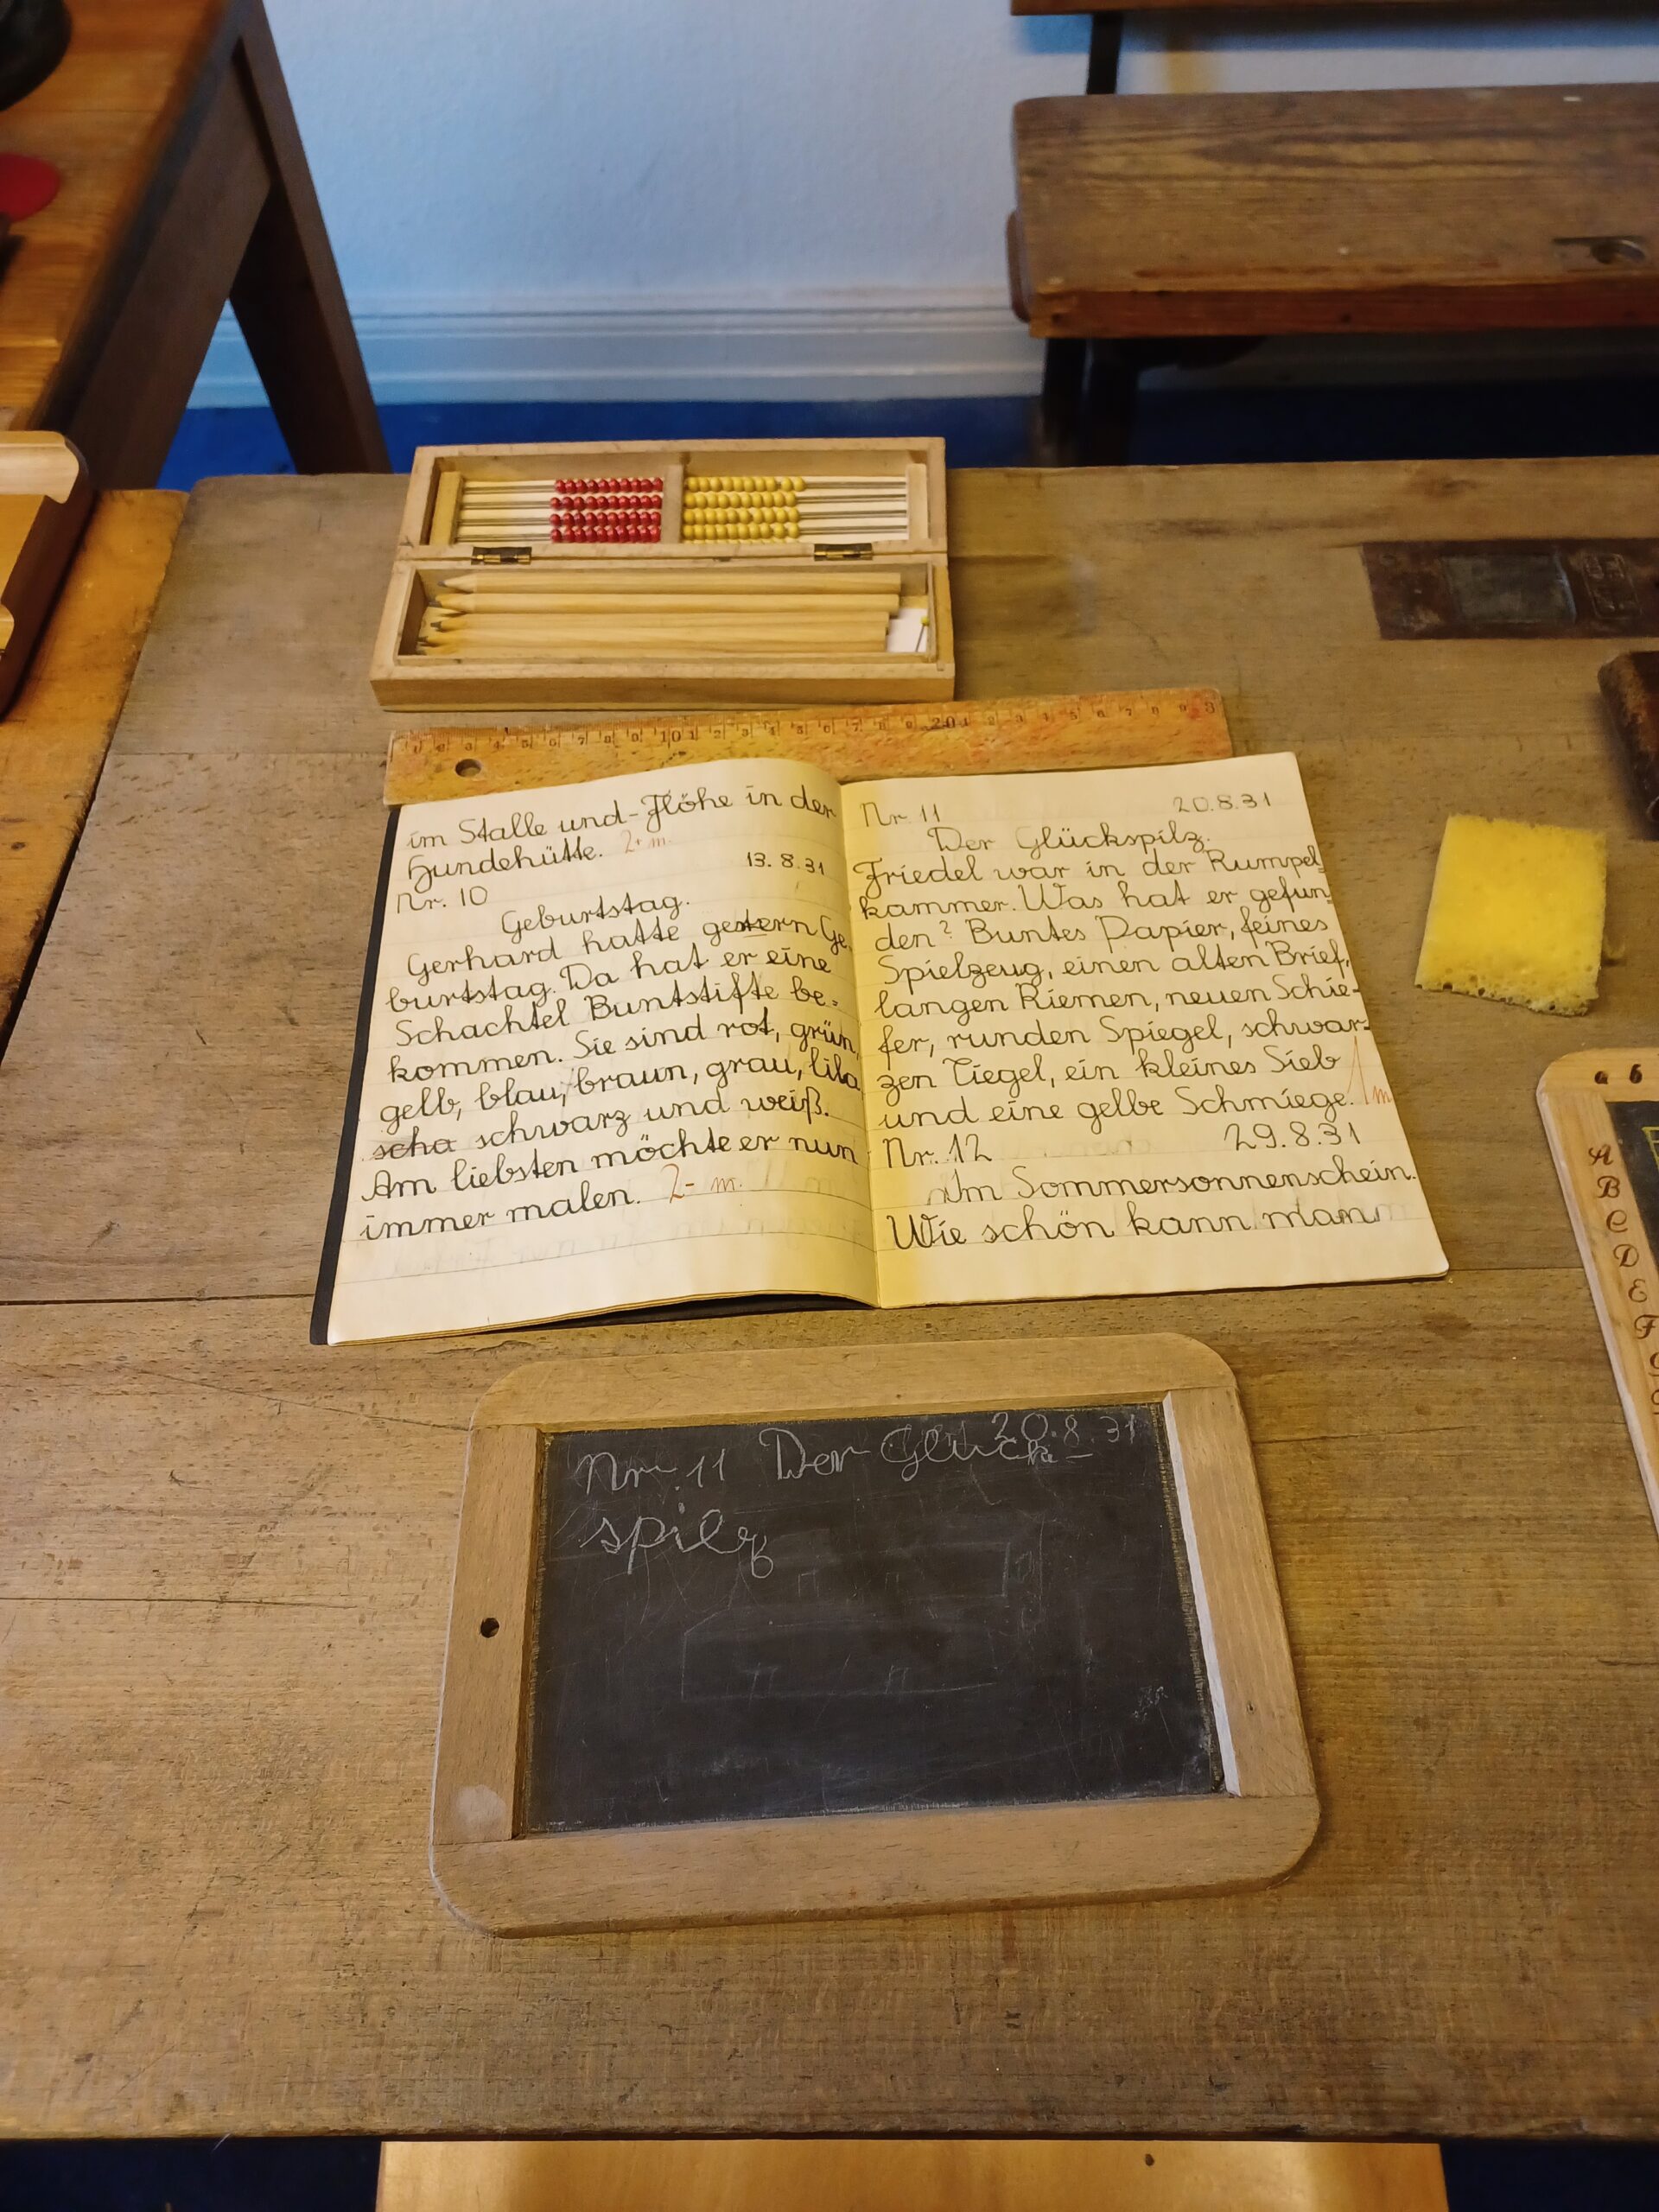 1 2 3 4 5 6 7 8 9 10 1 2 3 4 5 6 7 8 9 20 1 2 3 4 5 6 7 8 9 3
im Stalle und-Flöhe in der
Hundehütte. 2- m.
13.8.31
Nr. 10
Geburtstag.
Gerhard hatte gestern Ge-
burtstag. Da hat er eine
Schachtel Buntstifte be-
kommen. Sie sind rot, grün,
gelb, blau, braun, grau, lila
scha schwarz und weiß.
Am liebsten möchte er nun
immer malen. 2- m.
Nr. 11 20.8.31
Der Glückspilz.
Friedel war in der Rumpel-
kammer. Was hat er gefun-
den? Buntes Papier, feines
Spielzeug, einen alten Brief,
langen Riemen, neuen Schie-
fer, runden Spiegel, schwar-
zen Tiegel, ein kleines Sieb
und eine gelbe Schmiege. 1 m
Nr. 12 29.8.31
Im Sommersonnenschein.
Wie schön kann man
20.8.31
Nr. 11 Der Glück-
spilz
a b
A
B
C
D
E
F